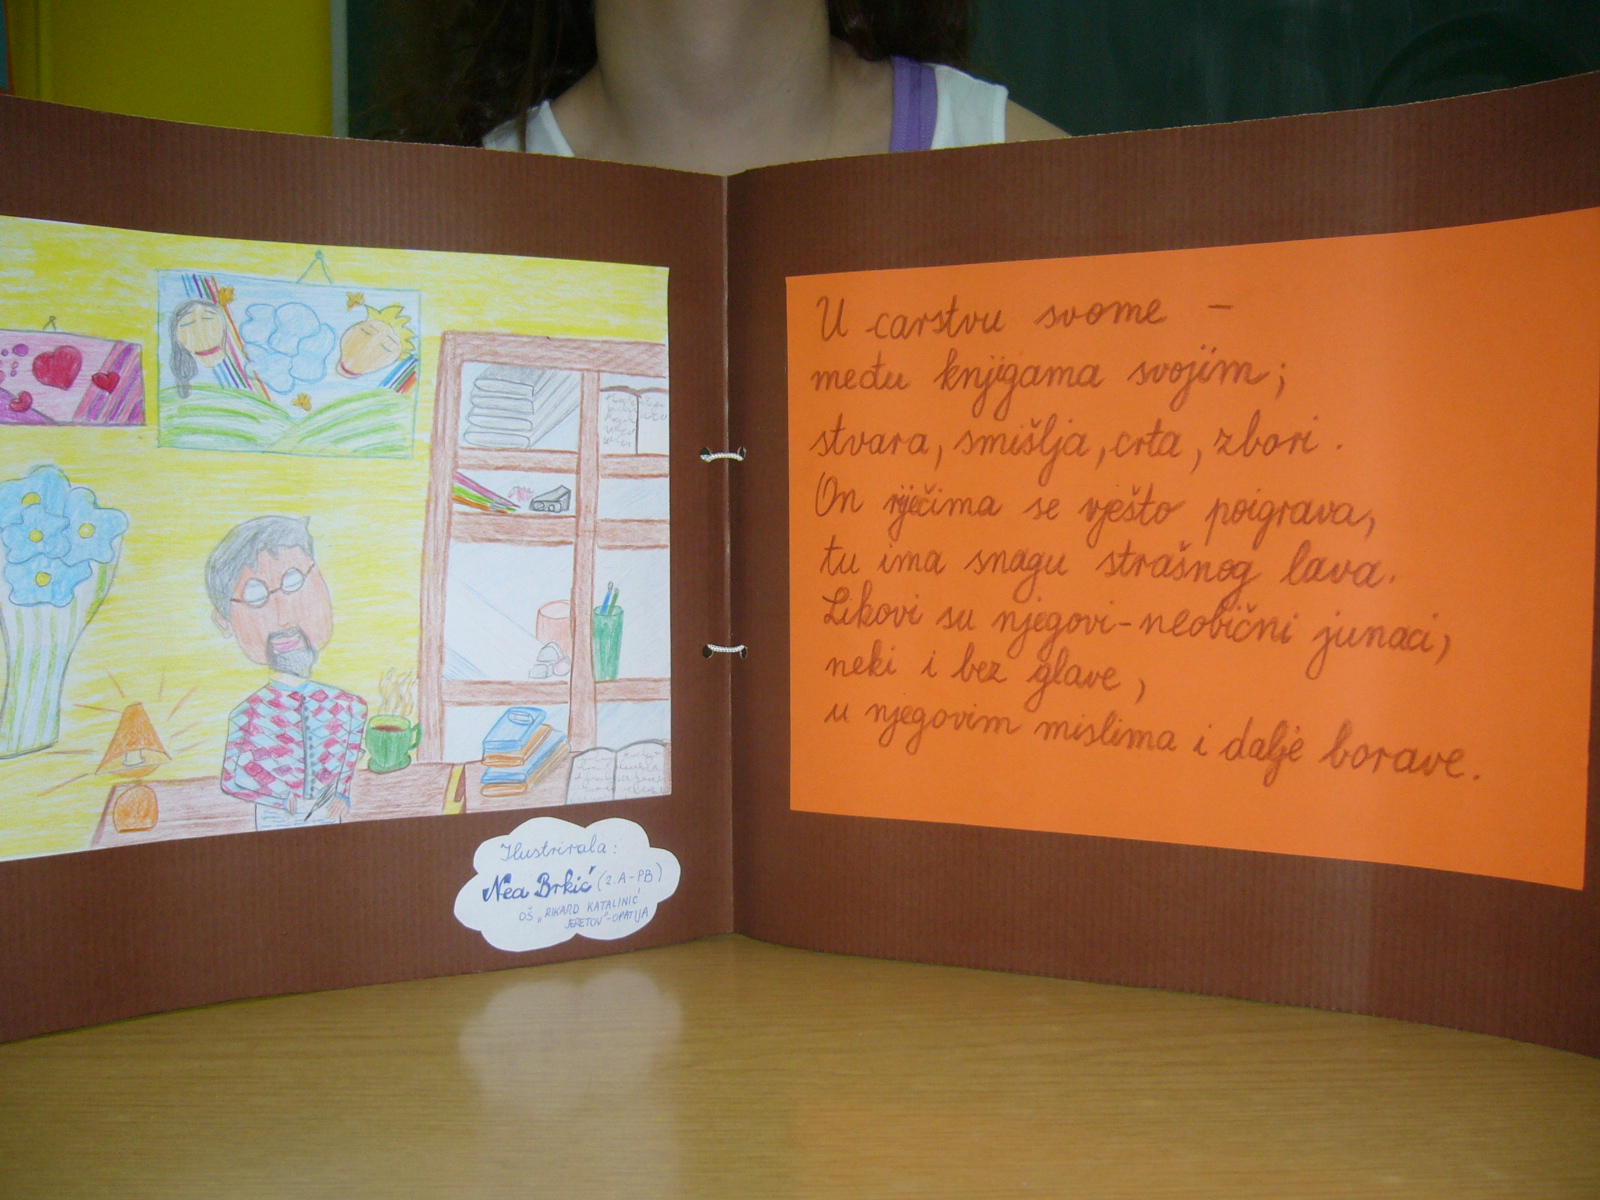 Ilustrirala:
Nea Brkić (2.A-PB)
OŠ „RIKARD KATALINIĆ
JERETOV"-OPATIJA
U carstvu svome –
među knjigama svojim;
stvara, smišlja, crta, zbori.
On riječima se vješto poigrava,
tu ima snagu strašnog lava.
Likovi su njegovi-neobični junaci,
neki i bez glave,
u njegovim mislima i dalje borave.